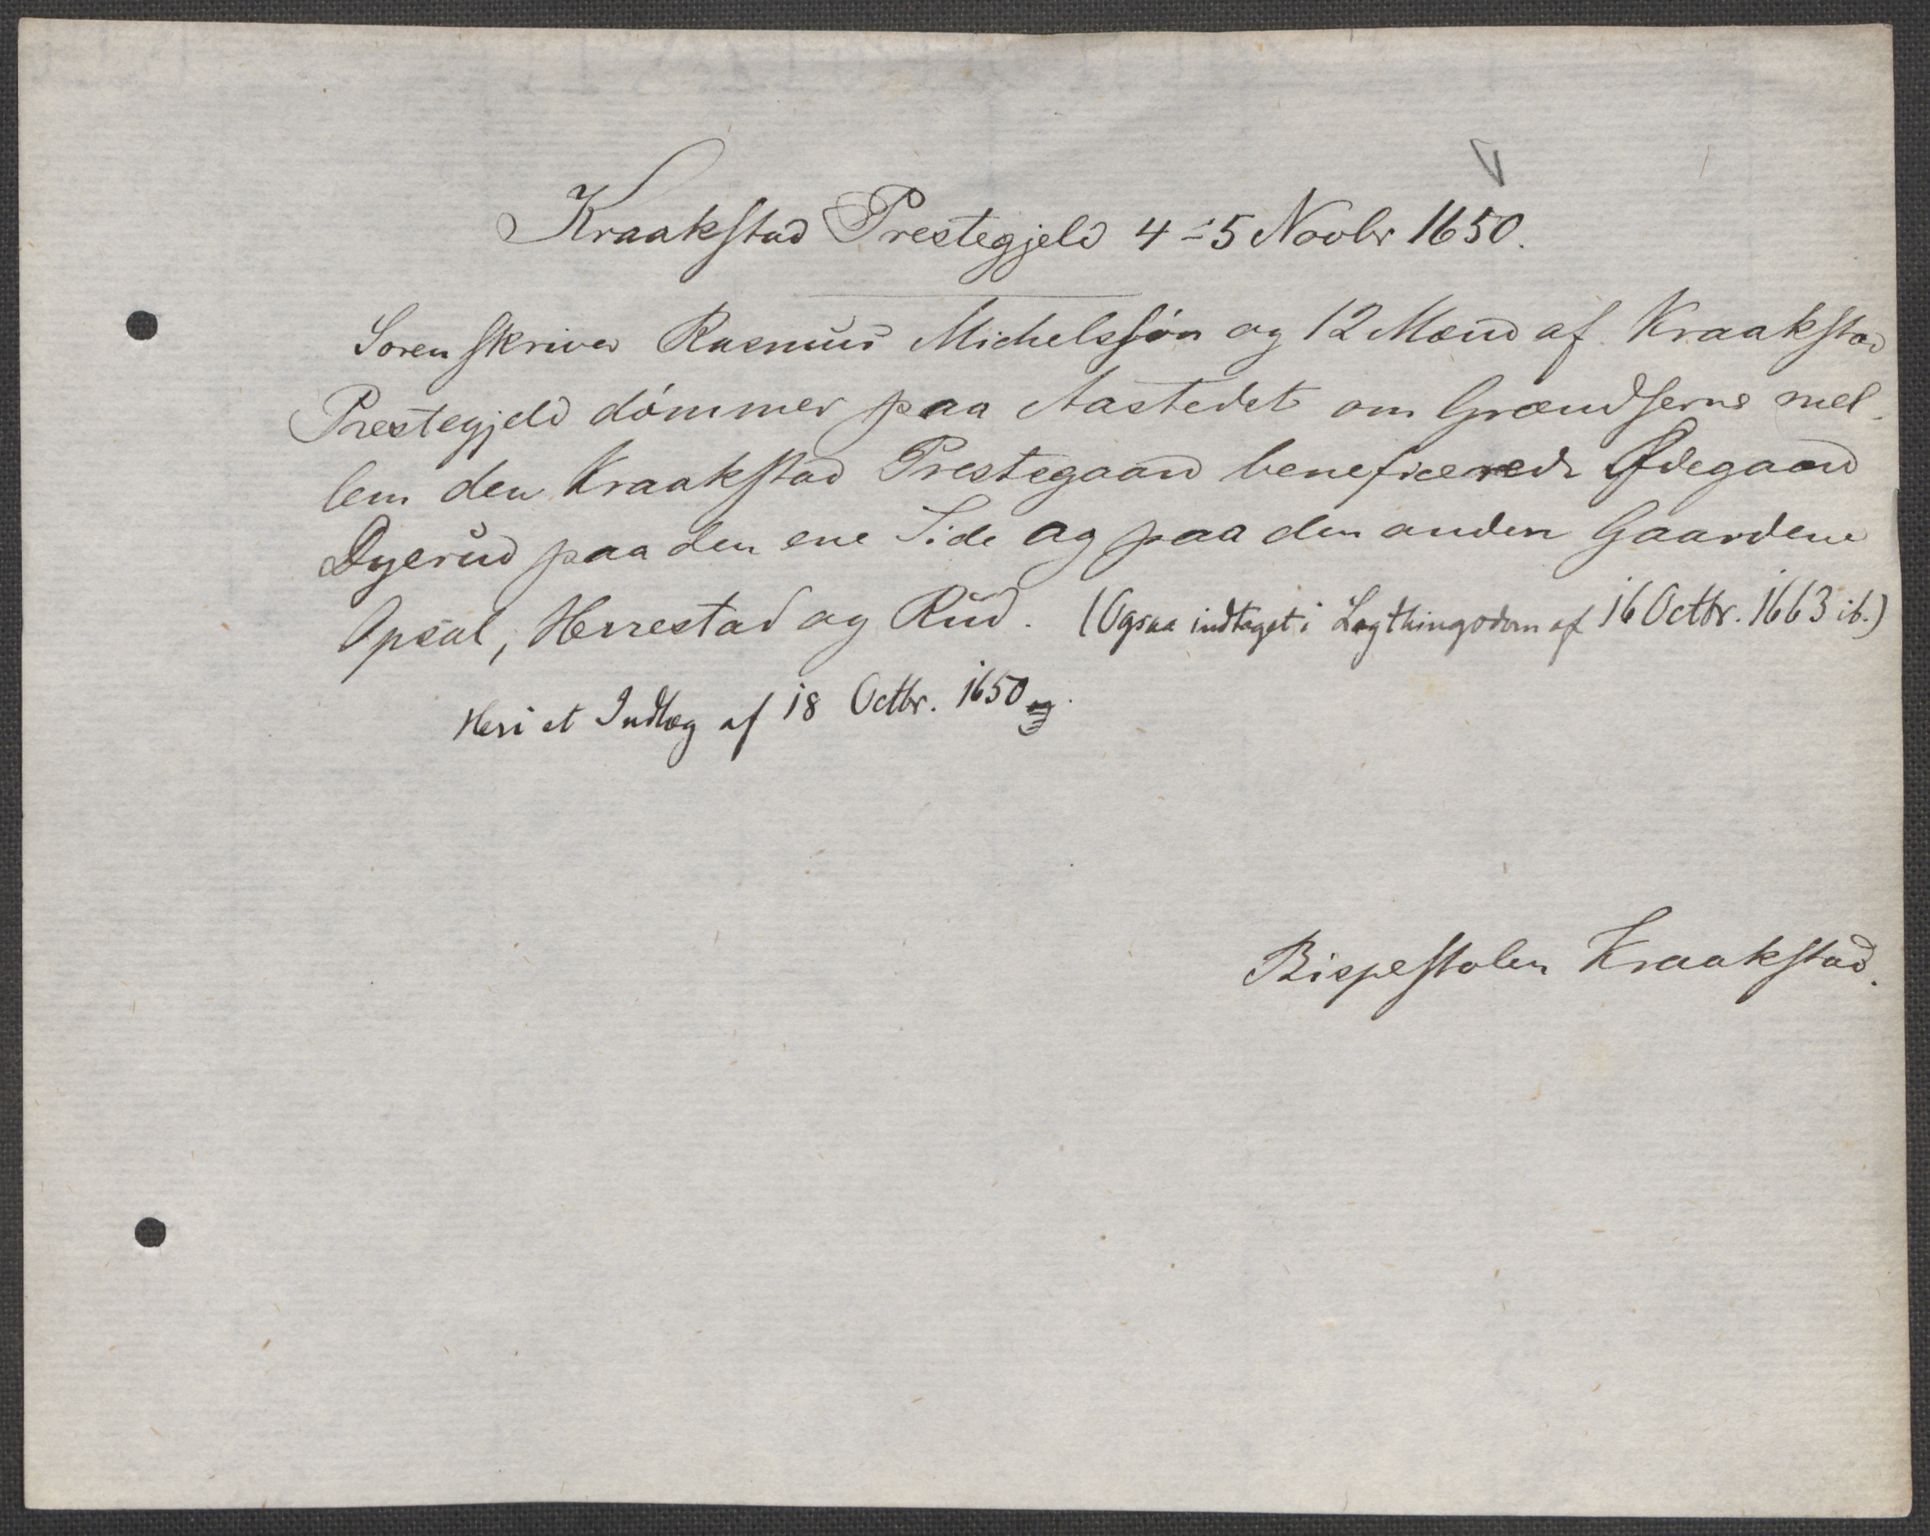 Kraakstad Prestegjeld 4-5 Novbr 1650.
Sorenskriver Rasmus Michelssøn og 12 Mænd af Kraakstad
Prestegjeld dømmer paa Aastedet om Grændserne mel-
lem den Kraakstad Prestegaard beneficerede Ødegaard
Dyerud paa den ene Side og paa den anden Gaardene
Opsal, Herrestad og Rud. (Ogsaa indtaget i Lagthingsdom af 16 Octbr. 1663 ib.)
Heri et Indlæg af 18 Octbr. 1650
Bispestolen Kraakstad.